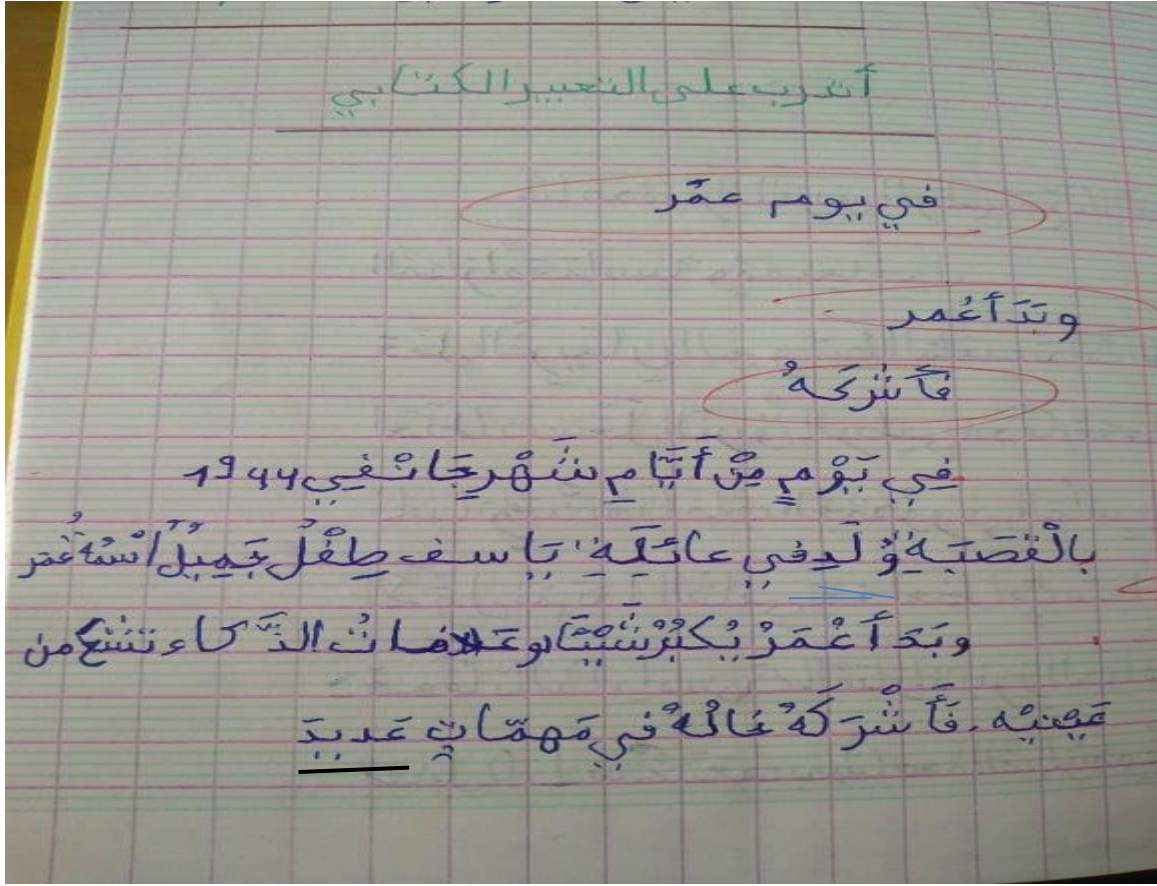 أتدرب على التعبير الكتابي
في يوم عمّر
وبَدَأَ عُمر
فَأَشْرَكَهُ
فِي يَوْمٍ مِنْ أَيَّامِ شَهْرِ جَانْفِي 1944
بِالْقَصَبَةِ وُلَدِ في عائلَةِ يَاسف طِفْلٌ جَمِيلٌ اسْمُهُ عُمَر
وبَدَأَ عُمَرْ يُكْبُرُ شَيْئًا وعَلامَاتُ الذَّكاء تشع من
عَيْنيْه. فَأَشْرَكَهُ خَالُهُ فِي مَهمَّاتٍ عَديدَ